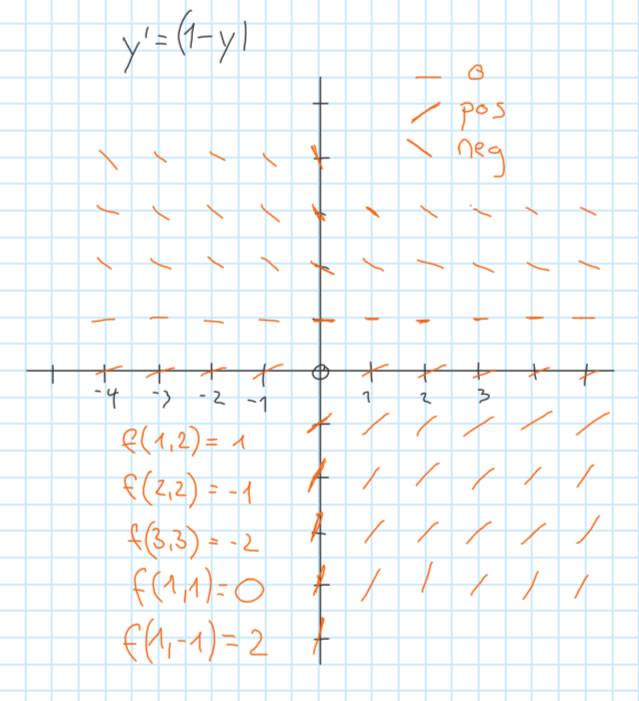 y' = (1-y)
— 0
/ pos
\ neg
-4 -3 -2 -1 1 2 3
f(1,2) = 1
f(2,2) = -1
f(3,3) = -2
f(1,1) = 0
f(1,-1) = 2